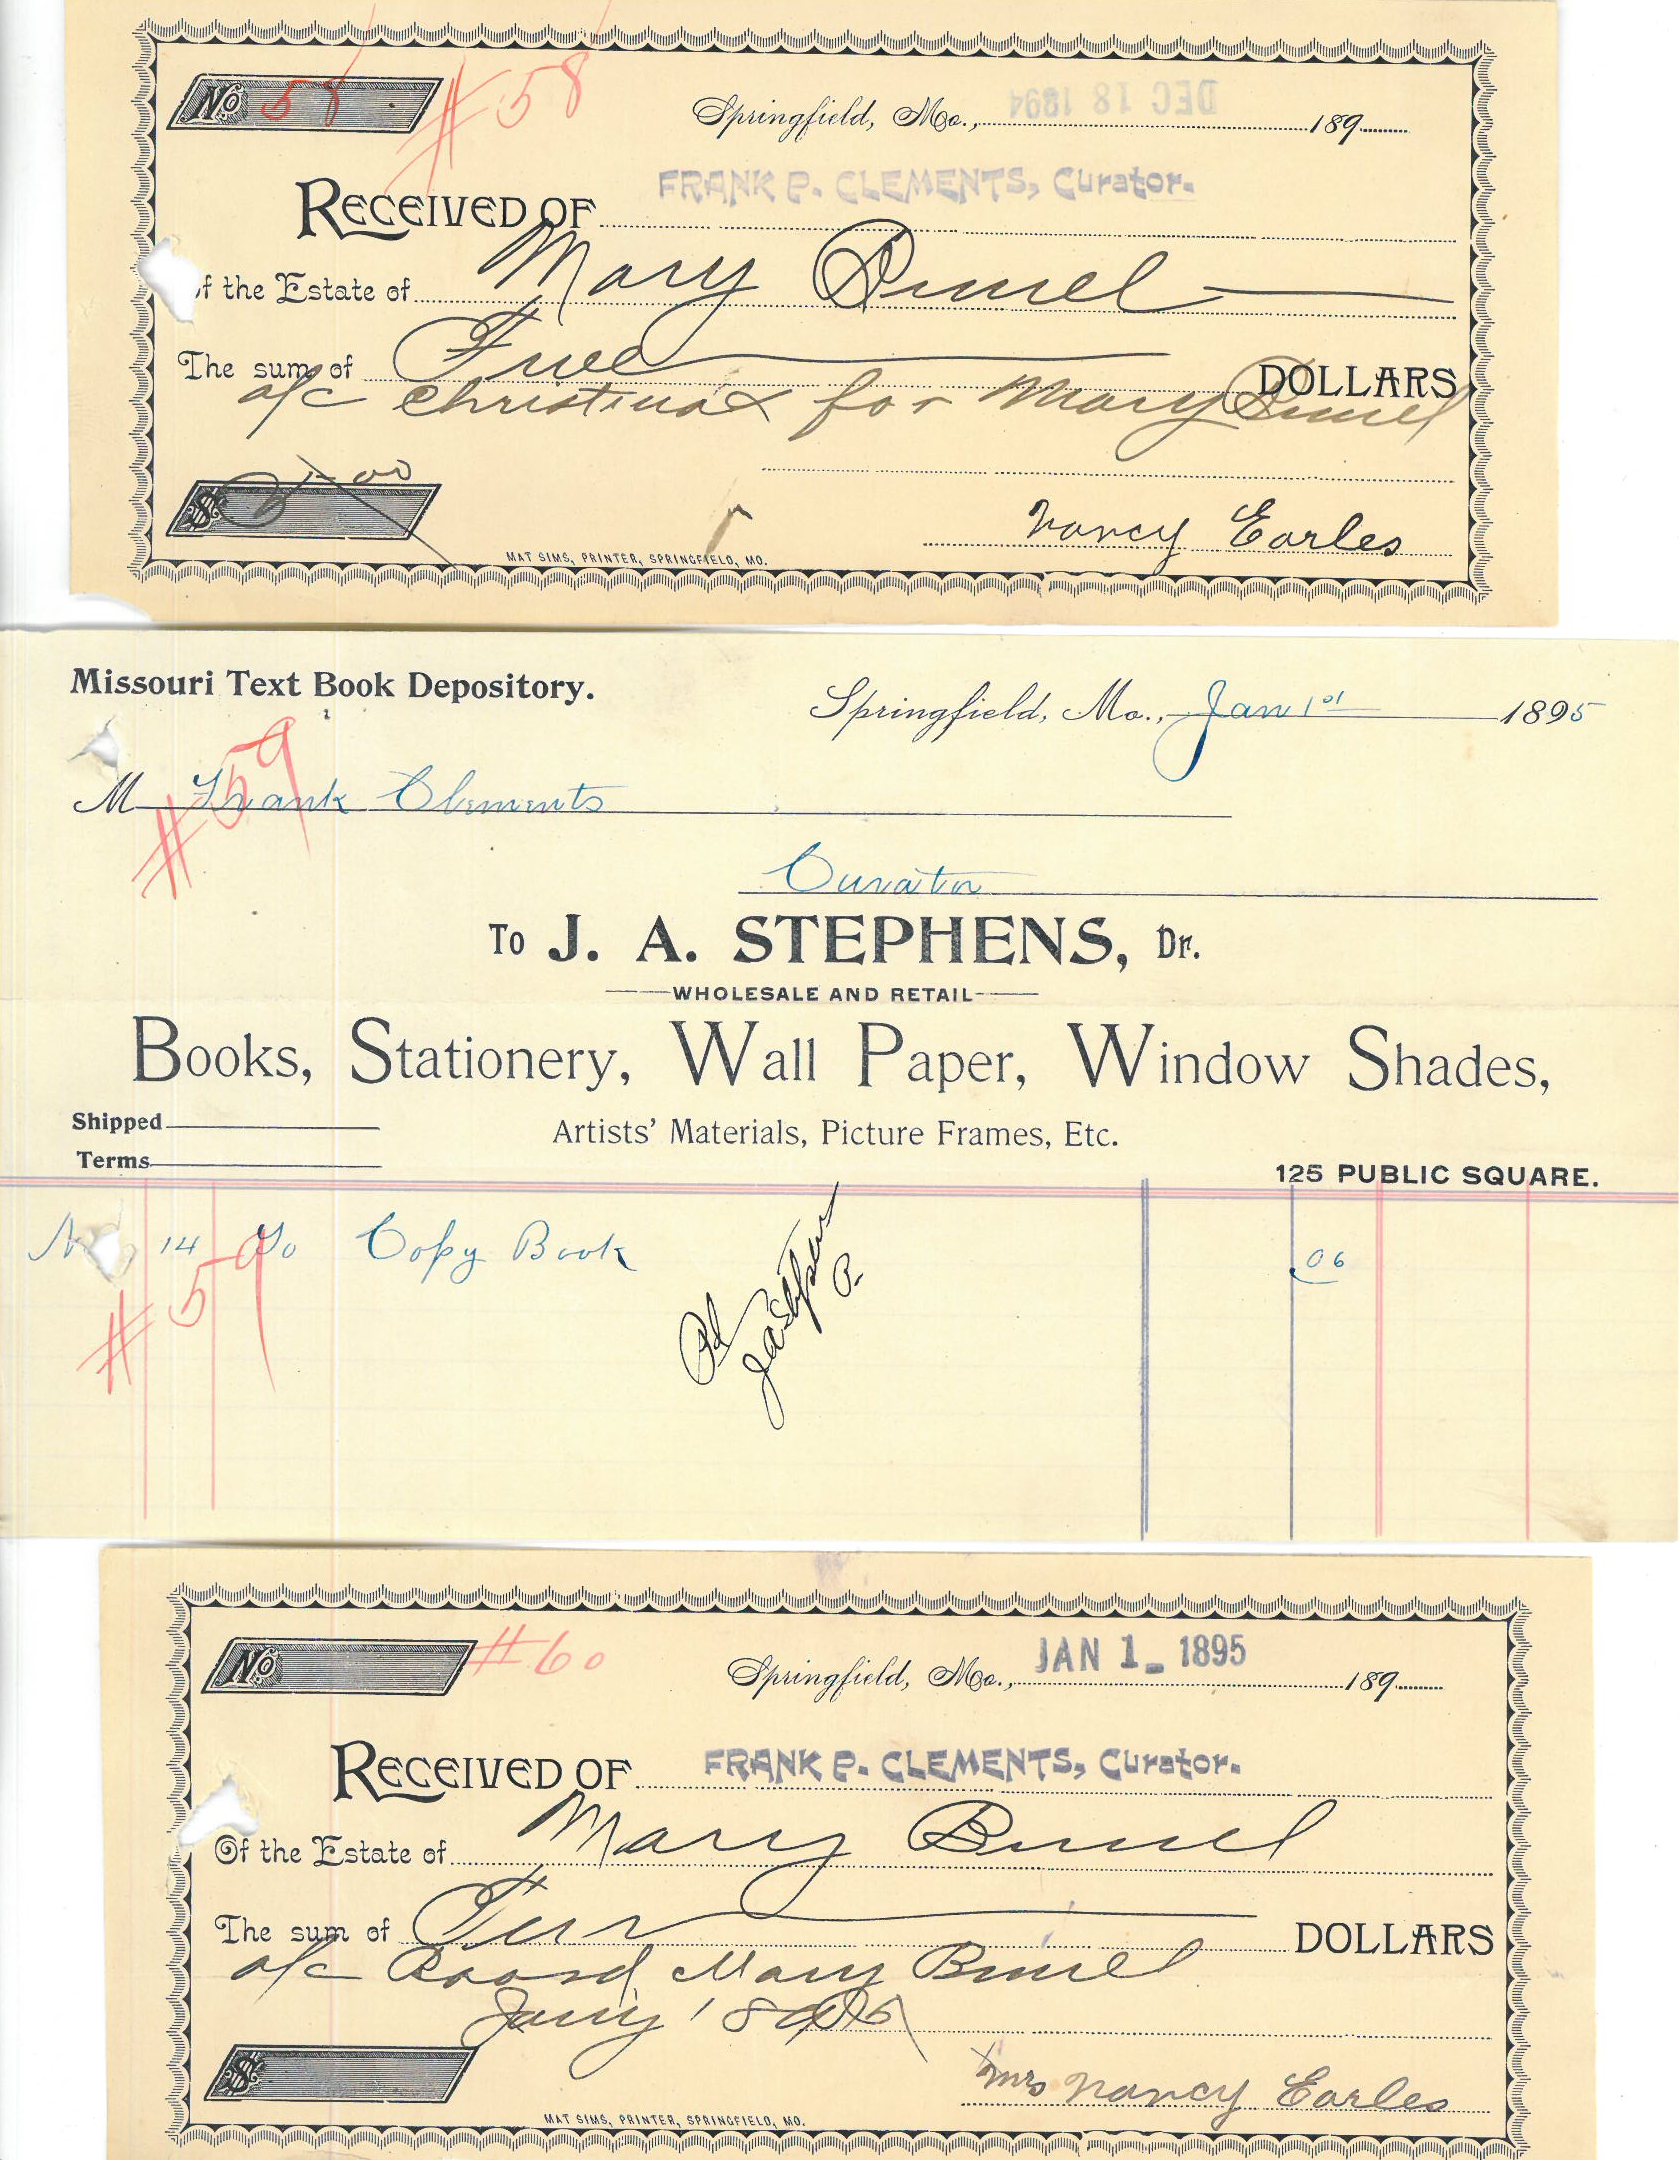 No 58 #58
Springfield, Mo., DEC 18 1894 189
RECEIVED OF FRANK P. CLEMENTS, Curator.
of the Estate of Mary
The sum of Five DOLLARS
a/c Christmas for Mary
$5.00
Nancy Earles
MAT SIMS, PRINTER, SPRINGFIELD, MO.
Missouri Text Book Depository.
Springfield, Mo., Jan 1st 1895
#59
M Frank Clements
Curator
To J. A. STEPHENS, Dr.
WHOLESALE AND RETAIL
Books, Stationery, Wall Paper, Window Shades,
Shipped
Artists' Materials, Picture Frames, Etc.
Terms
125 PUBLIC SQUARE.
14 To Copy Book 06
#59
Pd
JA Stephens
No #60
Springfield, Mo., JAN 1_ 1895 189
RECEIVED OF FRANK P. CLEMENTS, Curator.
Of the Estate of Mary
The sum of Ten DOLLARS
a/c Board Mary
Jany 1895
$
Mrs Nancy Earles
MAT SIMS, PRINTER, SPRINGFIELD, MO.